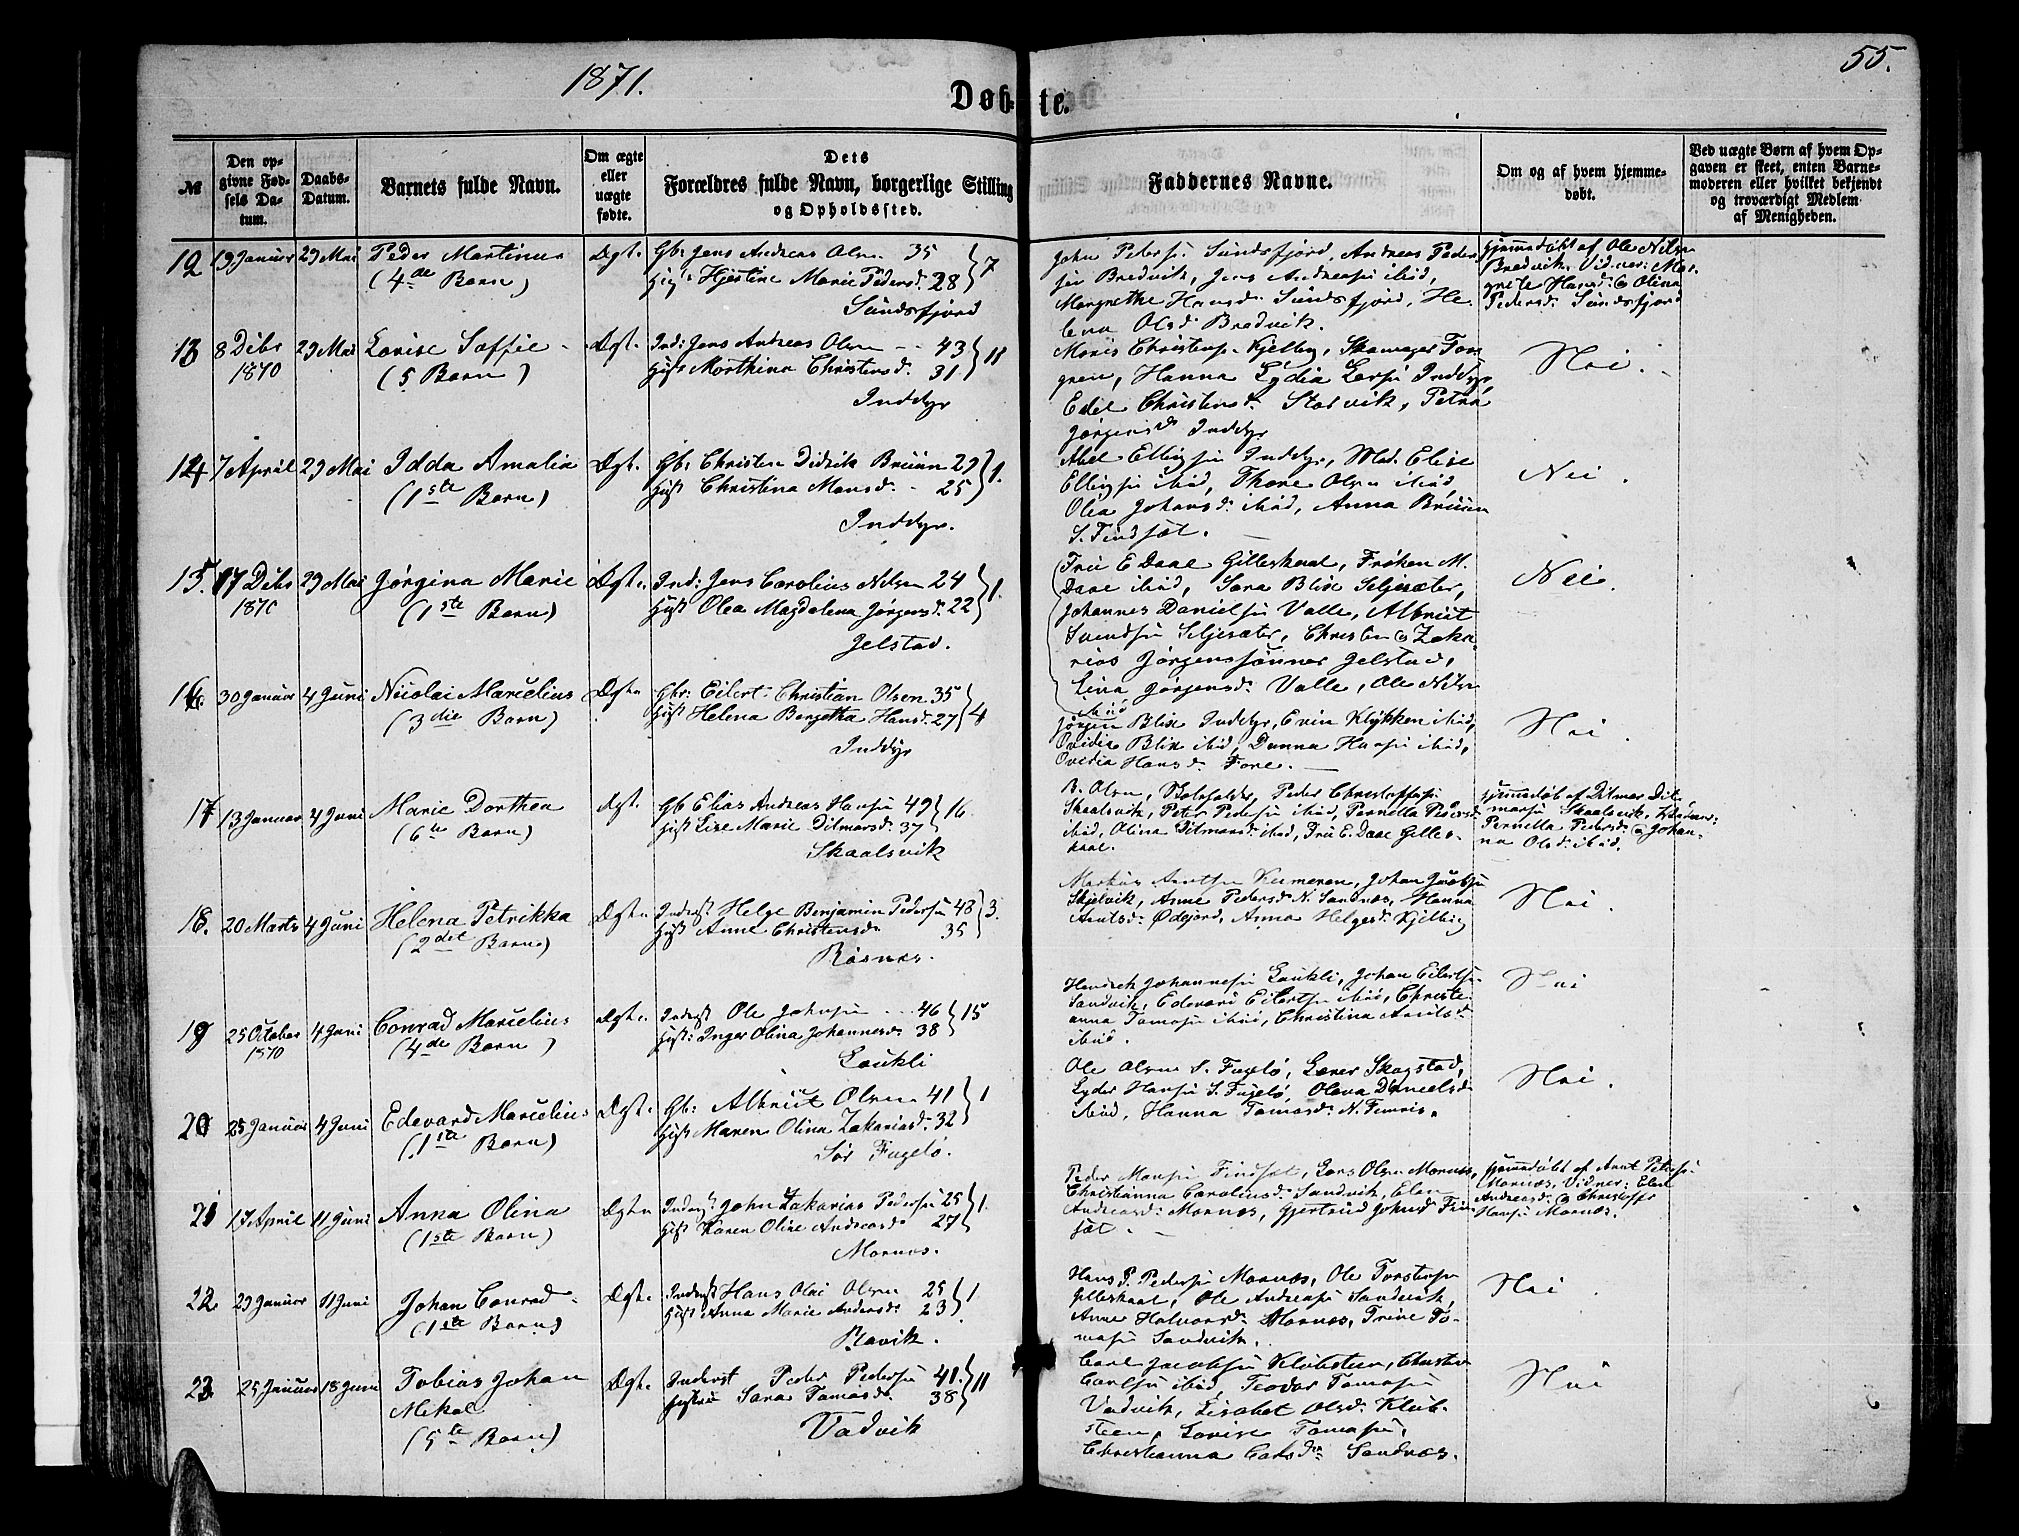 1871.
55.
Døbte.
№
Den op-
givne Fød-
sels Da-
tum.
Daabs-
Datum.
Barnets fulde Navn.
Om ægte
eller
uægte
fødte.
Dets
Forældres fulde Navn, borgerlige Stilling
og Opholdssted.
Faddernes Navne.
Om og af hvem hjemme-
døbt.
Ved uægte Børn af hvem Op-
gaven er skeet, enten Barne-
moderen eller hvilket bekjendt
og troværdigt Medlem
af Menigheden.
12 19 Januar 29 Mai Peder Martinus Ægt. Gb: Jens Andreas Olsen 35
(4de Barn) Hjertine Marie Pedersd. 28 } 7
Sundsfjord
John Peders. Sundsfjord, Andreas Peder-
sen Bredvik, Jens Andreasen ibid,
Margrethe Hansd. Sundsfjord, He-
lena Olsd. Bredvik.
Hjemmedøbt af Ole Nilsen
Bredvik, Vidner: Mar-
grete Hansd. & Olina
Pedersd. Sundsfjord
13 8 Debr 29 Mai Lovise Soffie Ægt. Ind: Jens Andreas Olsen 43
1870 (5 Barn) Hust Morthina Christensd. 31 } 11
Inddyr
Christens. Kjelling, Skomager
Hanna Lydia Inddyr,
Edel Christensd. Storvik, Petra
Jørgensd. Inddyr
Nei.
14 7 April 29 Mai Idda Amalia Ægt. Gb: Christen Didrik Bruun 29
(1ste Barn) Hust Christina Monsd. 25 } 1.
Inddyr.
Abel Ellingsen Inddyr, Mad. Elise
Ellingsen ibid, Thore Olsen ibid,
Olea Johansd. ibid, Anna Bruun
S. Findset.
Nei.
15. 17 Debr 29 Mai Jørgina Marie Ægt. Ind: Jens Carolius Nilsen 24
1870 (1ste Barn) Hust Olea Magdalena Jørgensd. 22 } 1.
Jelstad.
Fru E Daae Gilleskaal, Frøken M.
Daae ibid, Sara Blix Seljesæter,
Johannes Danielsen Valle, Albrigt
Svendsen Seljesæter, Christen & Zaka-
rias Jørgenssønner Jelstad,
Lina Jørgensd. Valle, Ole Nilsen
ibid
Nei.
16. 30 Januar 4 Juni Nicolai Marcelius Ægte Gbr: Eilert Christian Olsen 35
(3die Barn) Hust Helena Bergetha Hansd. 27 } 4
Inddyr
Jørgen Blix Inddyr, Evin Klykken ibid,
Ovidia Blix ibid, Danna Hansen ibid,
Ovedia Hansd. Fore.
Nei.
17 13 Januar 4 Juni Marie Dorthea Ægt. Gb Elias Andreas Hansen 49
(6te Barn) Hust Lise Marie Ditmarsd. 37 } 16.
Skaalsvik
B. Olsen, Peder Christoffersen
Skaalsvik, Peter Pedersen ibid, Pernella Pedersd.
ibid, Olina Ditmarsd. ibid, Fru E. Daae Gilles-
kaal.
Hjemmedøbt af Ditmar Dit-
marsen Skaalsvik, Vidner:
Pernella Pedersd. & Johan-
na Olsd. ibid.
18. 20 Marts 4 Juni Helena Petrikka Ægte Inderst Helge Benjamin Pedersen 43
(2det Barn) Hust Anne Christensd. 35 } 3.
Røsnes.
Markus Arntsen Johan Jacobsen
Skjelvik, Anne Pedersd. N. Sandnæs, Hanna
Arntsd. Ødejord, Anna Helgesd. Kjelling
Nei.
19 25 October 4 Juni Conrad Marcelius Ægte. Inderst Ole Johnsen 46
1870 (4de Barn) Hust: Inger Olina Johannesd. 38 } 15
Laukli
Hendrik Johannesen Laukli, Johan Eilertsen
Sandvik, Edevard Eilertsen ibid, Christi-
anna Tomasen ibid, Christina Arntsd.
ibid.
Nei
20 25 Januar 4 Juni Edevard Marcelius Ægt. Gb: Albrigt Olsen 41
(1ste Barn) Hust Maren Olina Zakariasd. 32 } 1
Sør Fugelø.
Ole Olsen S. Fugelø, Lærer Skogstad,
Lyder Hansen S. Fugelø, Olena Danielsd.
ibid, Hanna Tomasd. N. Femris.
Nei.
21 17 April 11 Juni Anna Olina Ægte Inderst John Zakarias Pedersen 25
(1ste Barn) Hust Karen Oline Andreasd. 27 } 1.
Mornes.
Peder Monsen Findset, Lars Olsen Mornes,
Christianna Caroliusd. Sandvik, Elen
Andreasd. Mornæs, Gjertrud Johnsd. Find-
set.
Hjemmedøbt af Arnt Petersen
Mornæs, Vidner: Elen
Andreasd. & Christoffer
Hansen Mornæs.
22. 29 Januar 11 Juni Johan Conrad Ægt. Inderst Hans Olai Olsen 25
(1ste Barn) Hust Anna Marie Andersd. 23 } 1.
Ravik.
Hans P. Pedersen Mornæs, Ole Torstensen
Gilleskaal, Ole Andreasen Sandvik,
Anne Halvorsd. Mornæs, Trine To-
masen Sandvik.
Nei.
23 25 Januar 18 Juni Tobias Johan Ægt. Inderst Peder Pedersen 41.
Mikal Hustru Sara Tomasd. 38 } 11
(5te Barn) Vadvik
Carl Jacobsen Klubsteen, Christen
Carlsen ibid, Teodor Tomasen
Vadvik, Lisabet Olsd. Klub-
steen, Lovise Tomasen,
Christianna Carlsd. Sandnæs.
Nei